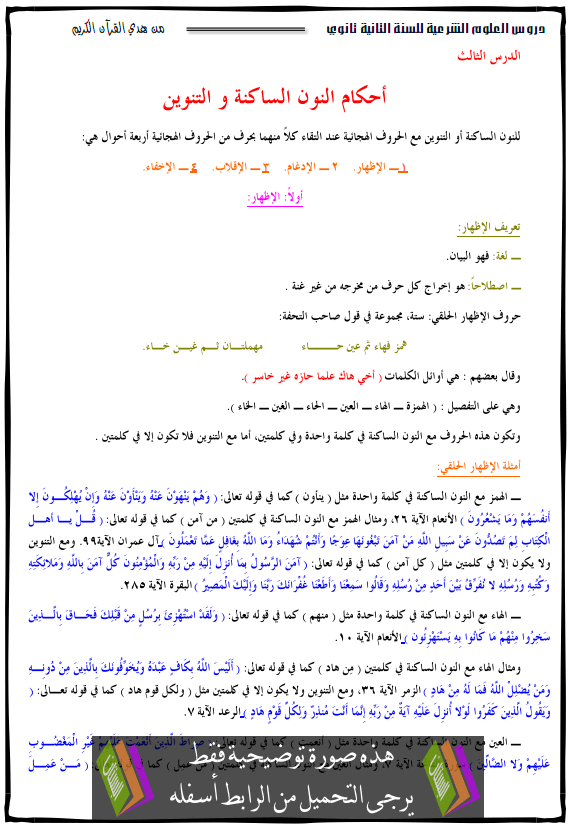 دروس العلوم الشرعية للسنة الثانية ثانوي من هدي القرآن الكريم
الدرس الثالث
أحكام النون الساكنة و التنوين
للنون الساكنة أو التنوين مع الحروف الهجائية عند التقاء كلاً منهما بحرف من الحروف الهجائية أربعة أحوال هي:
١ــ الإظهار. ٢ ــ الإدغام. ٣ ــ الإقلاب. ٤ــ الإخفاء.
أولاً: الإظهار:
تعريف الإظهار:
ــ لغة: فهو البيان.
ــ اصطلاحاً: هو إخراج كل حرف من مخرجه من غير غنة .
حروف الإظهار الحلقي: ستة، مجموعة في قول صاحب التحفة:
همز فهاء ثم عين حـــــــاء مهملتـــان ثـــم غيـــن خـــاء.
وقال بعضهم : هي أوائل الكلمات ( أخي هاك علما حازه غير خاسر ).
وهي على التفصيل : ( الهمزة ــ الهاء ــ العين ــ الحاء ــ الغين ــ الخاء ).
وتكون هذه الحروف مع النون الساكنة في كلمة واحدة وفي كلمتين، أما مع التنوين فلا تكون إلا في كلمتين .
أمثلة الإظهار الحلقي:
ــ الهمز مع النون الساكنة في كلمة واحدة مثل ( ينأون ) كما في قوله تعالى: ( وَهُمْ يَنْهَوْنَ عَنْهُ وَيَنْأَوْنَ عَنْهُ وَإِنْ يُهْلِكُــونَ إِلا
أَنفُسَهُمْ وَمَا يَشْعُرُونَ ) الأنعام الآية ٢٦، ومثال الهمز مع النون الساكنة في كلمتين ( من آمن ) كما في قوله تعالى: ( قُــلْ يــا أهــل
الْكِتَابِ لِمَ تَصُدُّونَ عَنْ سَبِيلِ اللَّهِ مَنْ آمَنَ تَبْغُونَهَا عِوَجًا وَأَنْتُمْ شُهَدَاءُ وَمَا اللَّهُ بِغَافِلٍ عَمَّا تَعْمَلُونَ )ِآل عمران الآية٩٩. ومع التنوين
ولا يكون إلا في كلمتين مثل ( كل آمن ) كما في قوله تعالى: ( آمَنَ الرَّسُولُ بِمَا أُنزِلَ إِلَيْهِ مِنْ رَبِّهِ وَالْمُؤْمِنُونَ كُلٌّ آمَنَ بِاللَّهِ وَمَلائِكَتِهِ
وَكُتُبِهِ وَرُسُلِهِ لا نُفَرِّقُ بَيْنَ أَحَدٍ مِنْ رُسُلِهِ وَقَالُوا سَمِعْنَا وَأَطَعْنَا غُفْرَانَكَ رَبَّنَا وَإِلَيْكَ الْمَصِيرُ ) البقرة الآية ٢٨٥.
ــ الهاء مع النون الساكنة في كلمة واحدة مثل ( منهم ) كما في قوله تعالى: ( وَلَقَدْ اسْتُهْزِئَ بِرُسُلٍ مِنْ قَبْلِكَ فَحَــاقَ بِالَّــذِينَ
سَخِرُوا مِنْهُمْ مَا كَانُوا بِهِ يَسْتَهْزِئُون )الأنعام الآية ١٠.
ومثال الهاء مع النون الساكنة في كلمتين ( مِن هاد ) كما في قوله تعالى: ( أَلَيْسَ اللَّهُ بِكَافٍ عَبْدَهُ وَيُخَوِّفُونَكَ بِالَّذِينَ مِنْ دُونِــهِ
وَمَنْ يُضْلِلْ اللَّهُ فَمَا لَهُ مِنْ هَادٍ ) الزمر الآية ٣٦، ومع التنوين ولا يكون إلا في كلمتين مثل ( ولكل قوم هاد ) كما في قوله تعــالى: (
وَيَقُولُ الَّذِينَ كَفَرُوا لَوْلا أُنزِلَ عَلَيْهِ آيَةٌ مِنْ رَبِّهِ إِنَّمَا أَنْتَ مُنذِرٌ وَلِكُلِّ قَوْمٍ هَادٍ )الرعد الآية ٧.
ــ العين مع النون الساكنة في كلمة واحدة مثل ( أنعمت ) كما في قوله تعالى: ( صِرَاطَ الَّذِينَ أَنْعَمْتَ عَلَيْهِمْ غَيْرِ الْمَغْضُــوبِ
عَلَيْهِمْ وَلا الضَّالِّينَ ) الآية ٧. ومثال العين مع النون الساكنة في كلمتين ( من عمل ) كما في : ( مَــنْ عَمِــلَ
هذه صورة توضيحية فقط
يرجى التحميل من الرابط أسفله